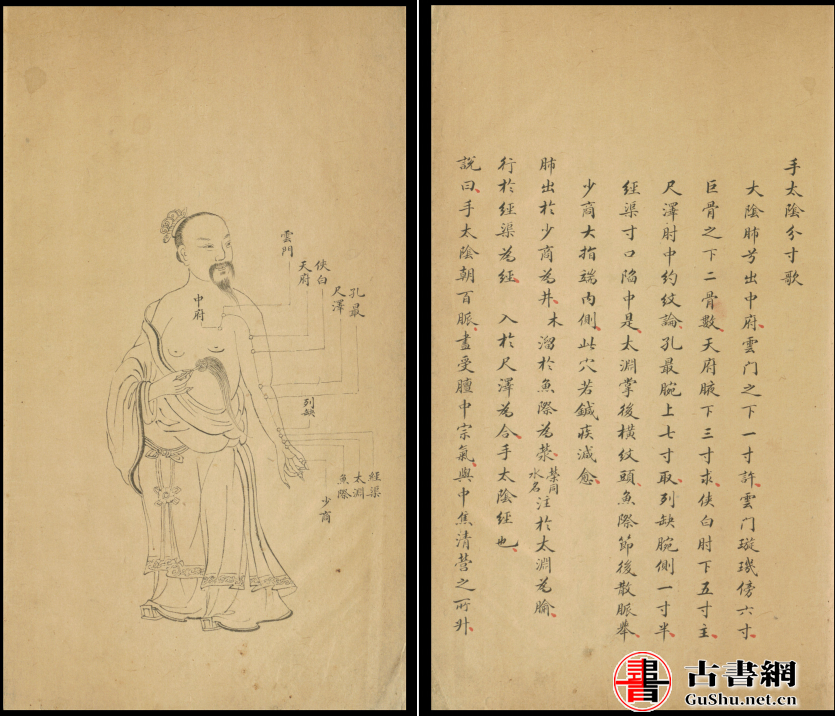 手太陰分寸歌
大陰肺兮出中府雲門之下一寸許雲門璇璣傍六寸
巨骨之下二骨數天府腋下三寸求俠白肘下五寸主
尺澤肘中約紋論孔最腕上七寸取列缺腕側一寸半
經渠寸口陷中是太淵掌後橫紋頭魚際節後散脈舉
少商大指端內側此穴若鍼疾減愈
肺出於少商為井木溜於魚際為滎滎同水名注於太淵為腧
行於經渠為經入於尺澤為合手太陰經也
說曰手太陰朝百脈盡受膻中宗氣與中焦清營之所升
雲門
俠白
天府
孔最
尺澤
中府
列缺
經渠
太淵
魚際
少商
書
古書網
GuShu.net.cn